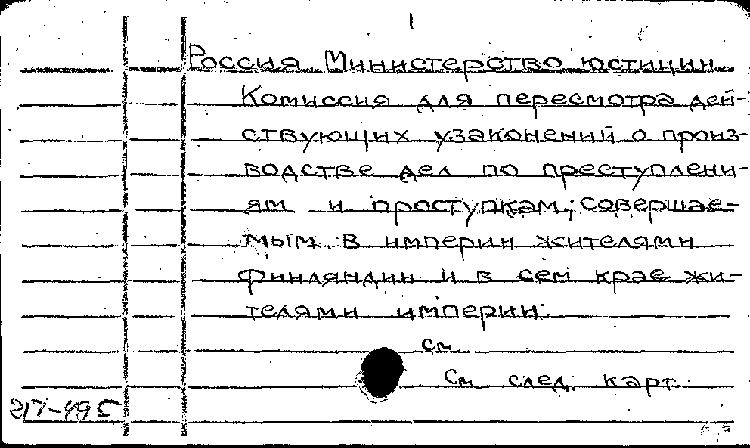 Россия Министерство юстиции
Комиссия для пересмотра дей-
ствующих узаконений о произ-
водстве дел по преступлени-
ям и проступкам, совершае-
мым в империи жителями
Финляндии и в сем крае жи-
телями империи.
см.
См. след. карт.
217-495